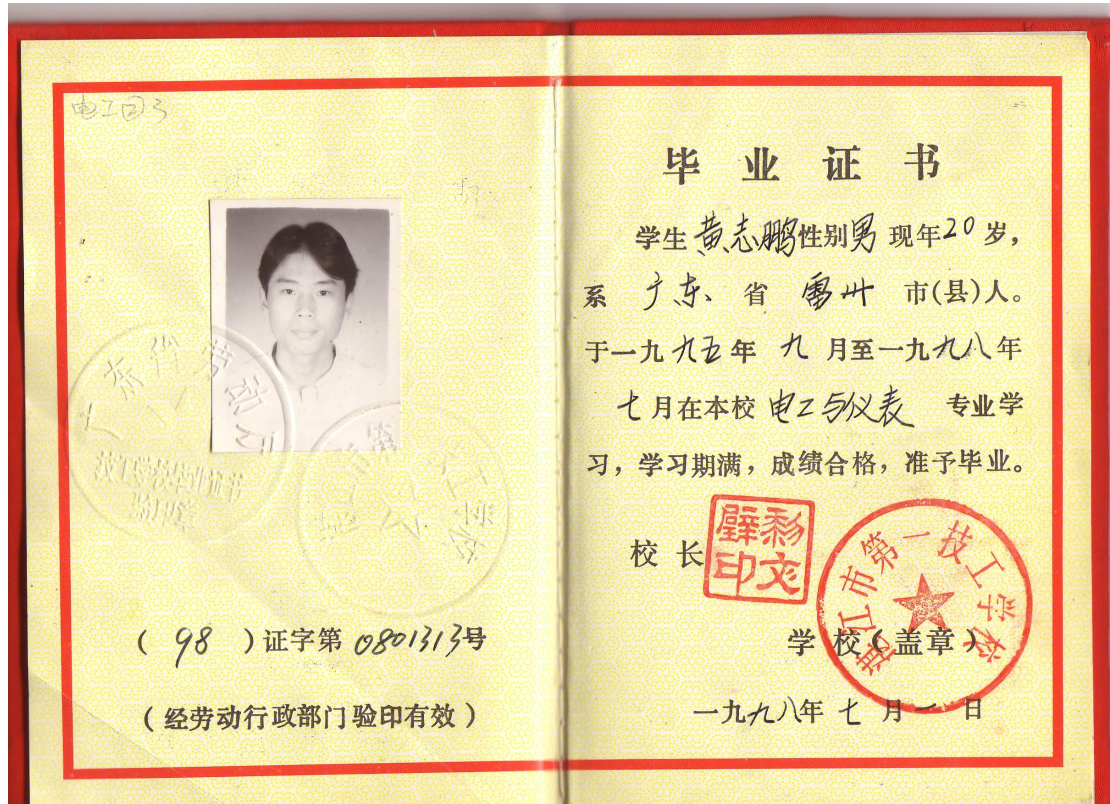 电工四3
广东省劳动厅
技工学校毕业证书
验印章
(98)证字第0801313号
(经劳动行政部门验印有效)
毕业证书
学生黄志鹏性别男现年20岁,
系广东省雷州市(县)人。
于一九九五年九月至一九九八年
七月在本校电工与仪表专业学
习,学习期满,成绩合格,准予毕业。
校长
学校(盖章)
湛江市第一技工学校
一九九八年七月一日